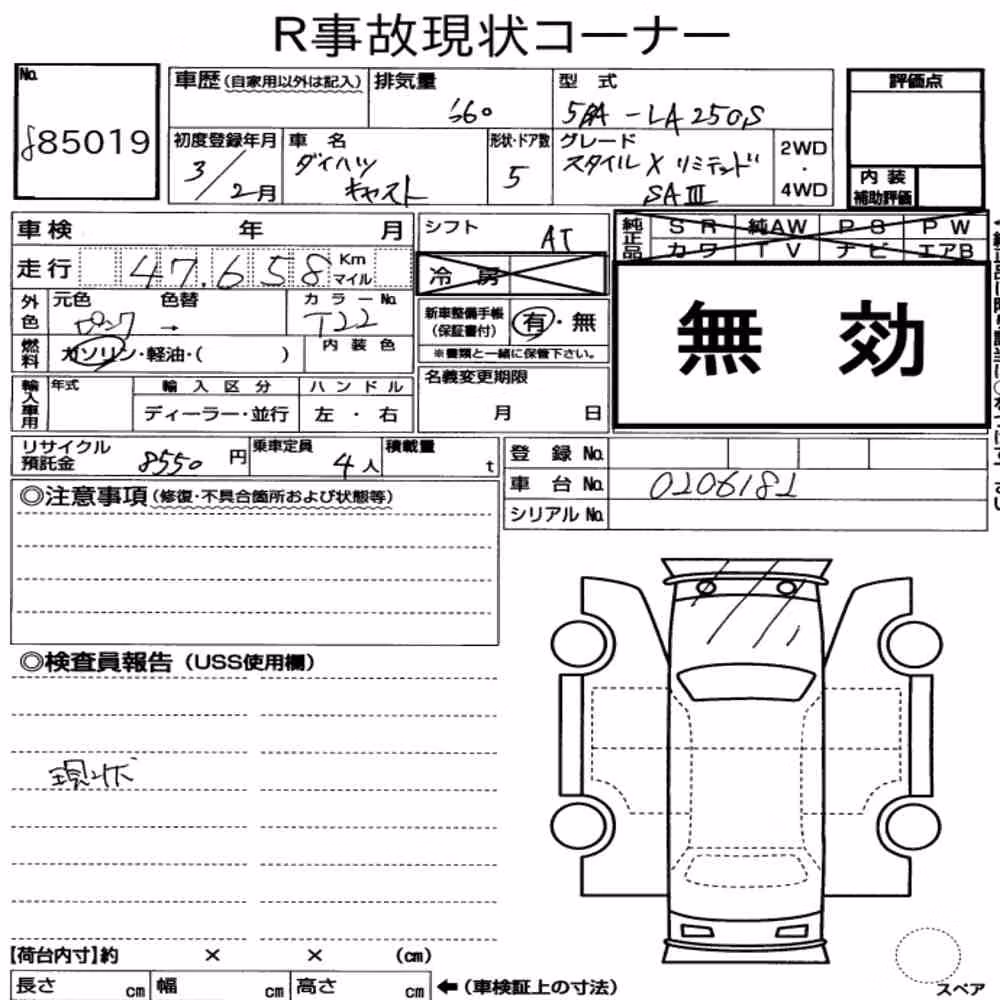 R事故現状コーナー
No.
85019
車歴(自家用以外は記入)
排気量
660
型 式
5BA-LA250S
評価点
初度登録年月
3/2月
車 名
ダイハツ
キャスト
形状・ドア数
5
グレード
スタイルXリミテッド
SAIII
2WD
・
4WD
内 装
補助評価
車検 年 月
走行 47,658 Km
マイル
シフト
AT
冷 房
純正品
S R 純AW P S P W
カワ T V ナビ エアB
外色
元色 色替
ピンク →
カラーNo.
T22
新車整備手帳
(保証書付)
有・無
※書類と一緒に保管下さい。
無 効
燃料
ガソリン・軽油・( )
内 装 色
輸入車用
年式
輸 入 区 分
ディーラー・並行
ハ ン ド ル
左 ・ 右
名義変更期限
月 日
リサイクル
預託金
8550円
乗車定員
4人
積載量
t
登 録 No.
車 台 No.
0206181
シリアル No.
◎注意事項(修復・不具合箇所および状態等)
◎検査員報告(USS使用欄)
現状
【荷台内寸】約 × × (cm)
長さ cm 幅 cm 高さ cm ←(車検証上の寸法)
スペア